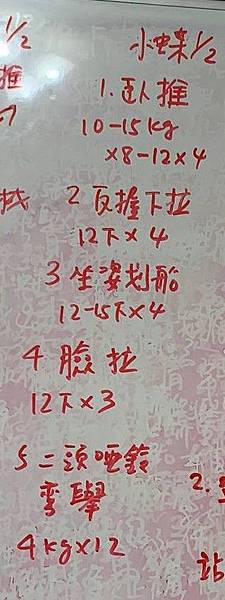 小蝶 1/2
1. 臥推
10-15kg
×8-12×4
2 反握下拉
12下×4
3 坐姿划船
12-15下×4
4 臉拉
12下×3
5 二頭啞鈴
彎舉
4kg×12
1/2
推
2.
站